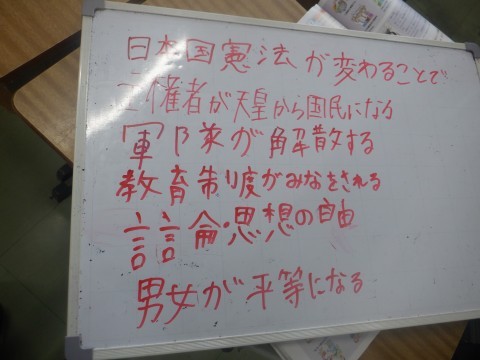 日本国憲法が変わることで
主権者が天皇から国民になる
軍隊が解散する
教育制度がみなをされる
言論・思想の自由
男女が平等になる